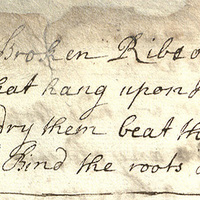 Broken Ribs o
hat hang upon
dry them beat th
Bind the roots